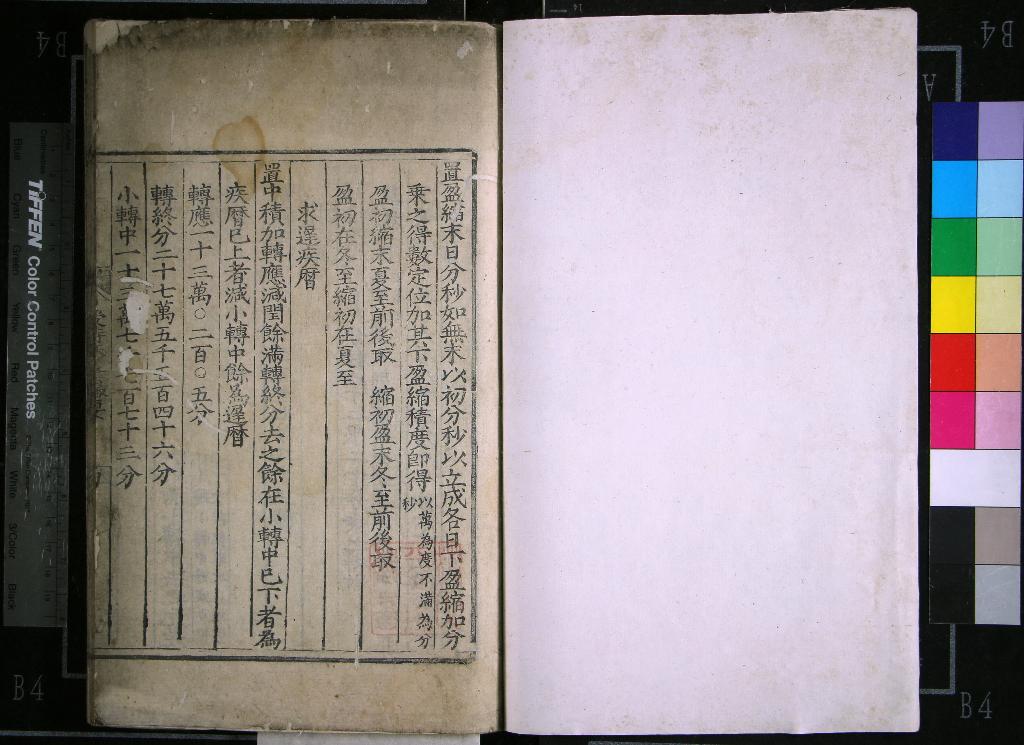 置盈縮末日分秒如無末以初分秒以立成各日下盈縮加分
乘之得數定位加其下盈縮積度卽得以萬為度不滿為分秒
盈初縮末夏至前後取 縮初盈末冬至前後取
盈初在冬至縮初在夏至
求遲疾曆
置中積加轉應減閏餘滿轉終分去之餘在小轉中已下者為
疾曆已上者減小轉中餘為遲曆
轉應一十三萬〇二百〇五分
轉終分二十七萬五千五百四十六分
小轉中一十三萬七千七百七十三分
TIFFEN Color Control Patches
Blue Cyan Green Yellow Red Magenta White 3/Color Black
B4
B4
B4
B4
A